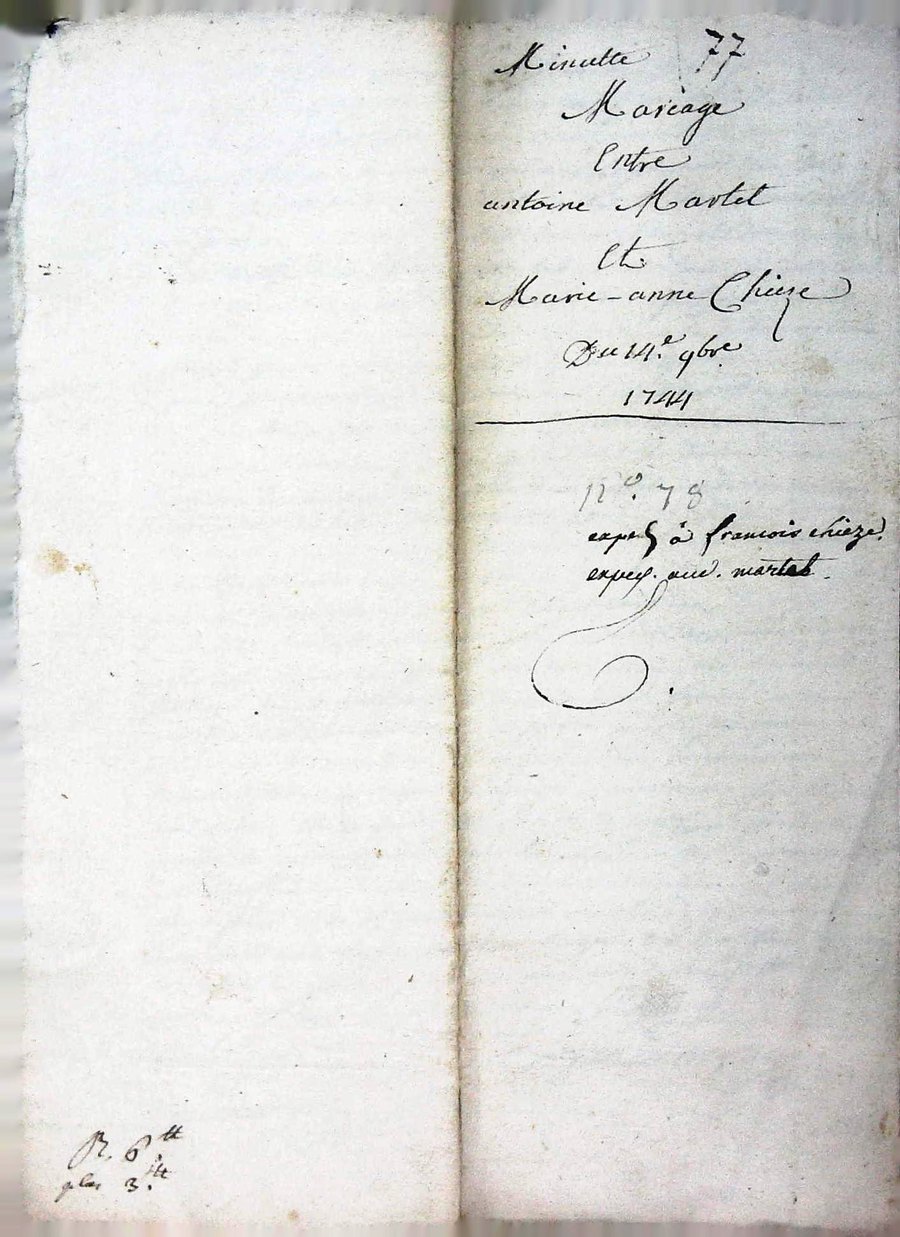 Minutte 77
Mariage
Entre
antoine Martel
Et
Marie-anne Chieze
Du 14.e 9bre
1744
N.o 78
exped à francois chieze.
exped. aud. martel.
R. 6.tt
plus 3.tt